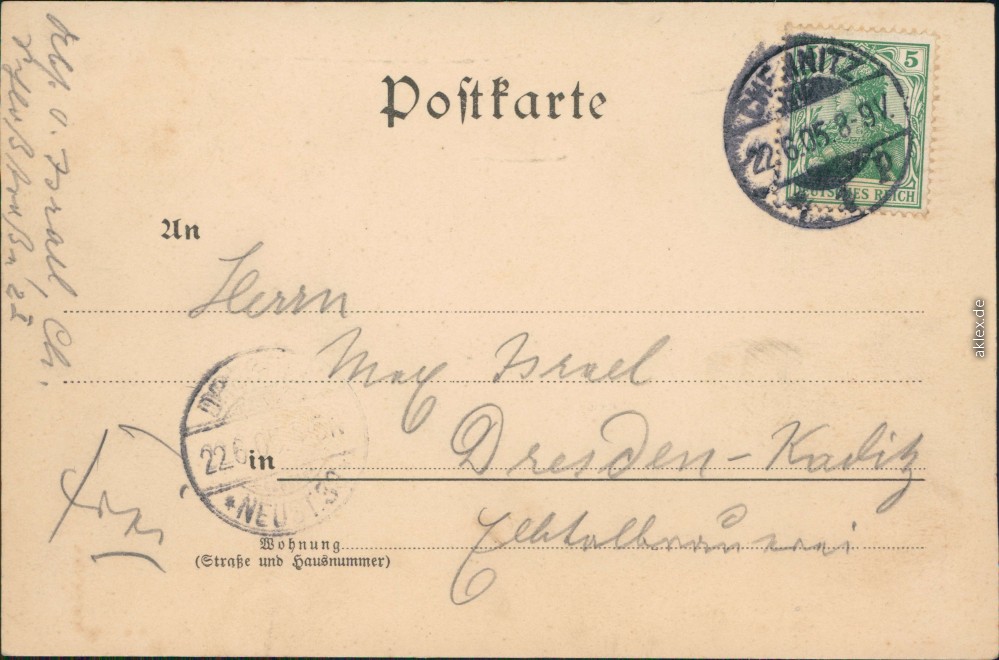 Postkarte
5
DEUTSCHES REICH
CHEMNITZ
22.6.05. 8-9V.
An
Herrn
Max Israel
in Dresden-Kaditz
Elbtalbrauerei
Wohnung
(Straße und Hausnummer)
22.6
*NEUST.
Abs. O. Israel, Ch.
aklex.de